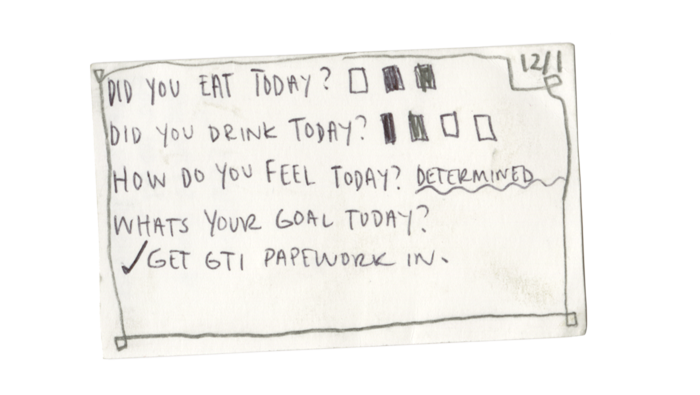 12/1
DID YOU EAT TODAY?
DID YOU DRINK TODAY?
HOW DO YOU FEEL TODAY? DETERMINED
WHATS YOUR GOAL TODAY?
✓GET GTI PAPEWORK IN.